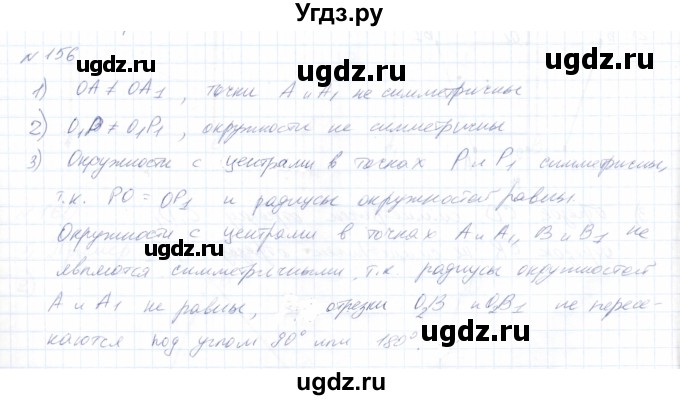 Угдз.ру
№ 156
1) OA ≠ OA₁, точки A и A₁ не симметричны
2) O₁P ≠ O₁P₁, окружности не симметричны
3) Окружности с центрами в точках P и P₁ симметричны,
т.к. PO = OP₁ и радиусы окружностей равны.
Окружности с центрами в точках A и A₁, B и B₁ не
являются симметричными, т.к. радиусы окружностей
A и A₁ не равны, отрезки O₂B и O₂B₁ не пересе-
каются под углом 90° или 180°.
ugdz.ru
ugdz.ru
ugdz.ru
ugdz.ru
ugdz.ru
ugdz.ru
ugdz.ru
ugdz.ru
ugdz.ru
ugdz.ru